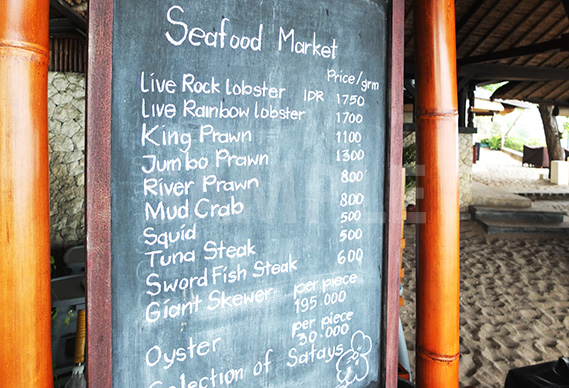 Seafood Market
Price/grm
Live Rock lobster IDR 1750
Live Rainbow lobster 1700
King Prawn 1100
Jumbo Prawn 1300
River Prawn 800
Mud Crab 800
Squid 500
Tuna Steak 500
Sword Fish Steak 600
Giant Skewer per piece
195.000
Oyster per piece
30.000
Selection of Satays
SAMPLE